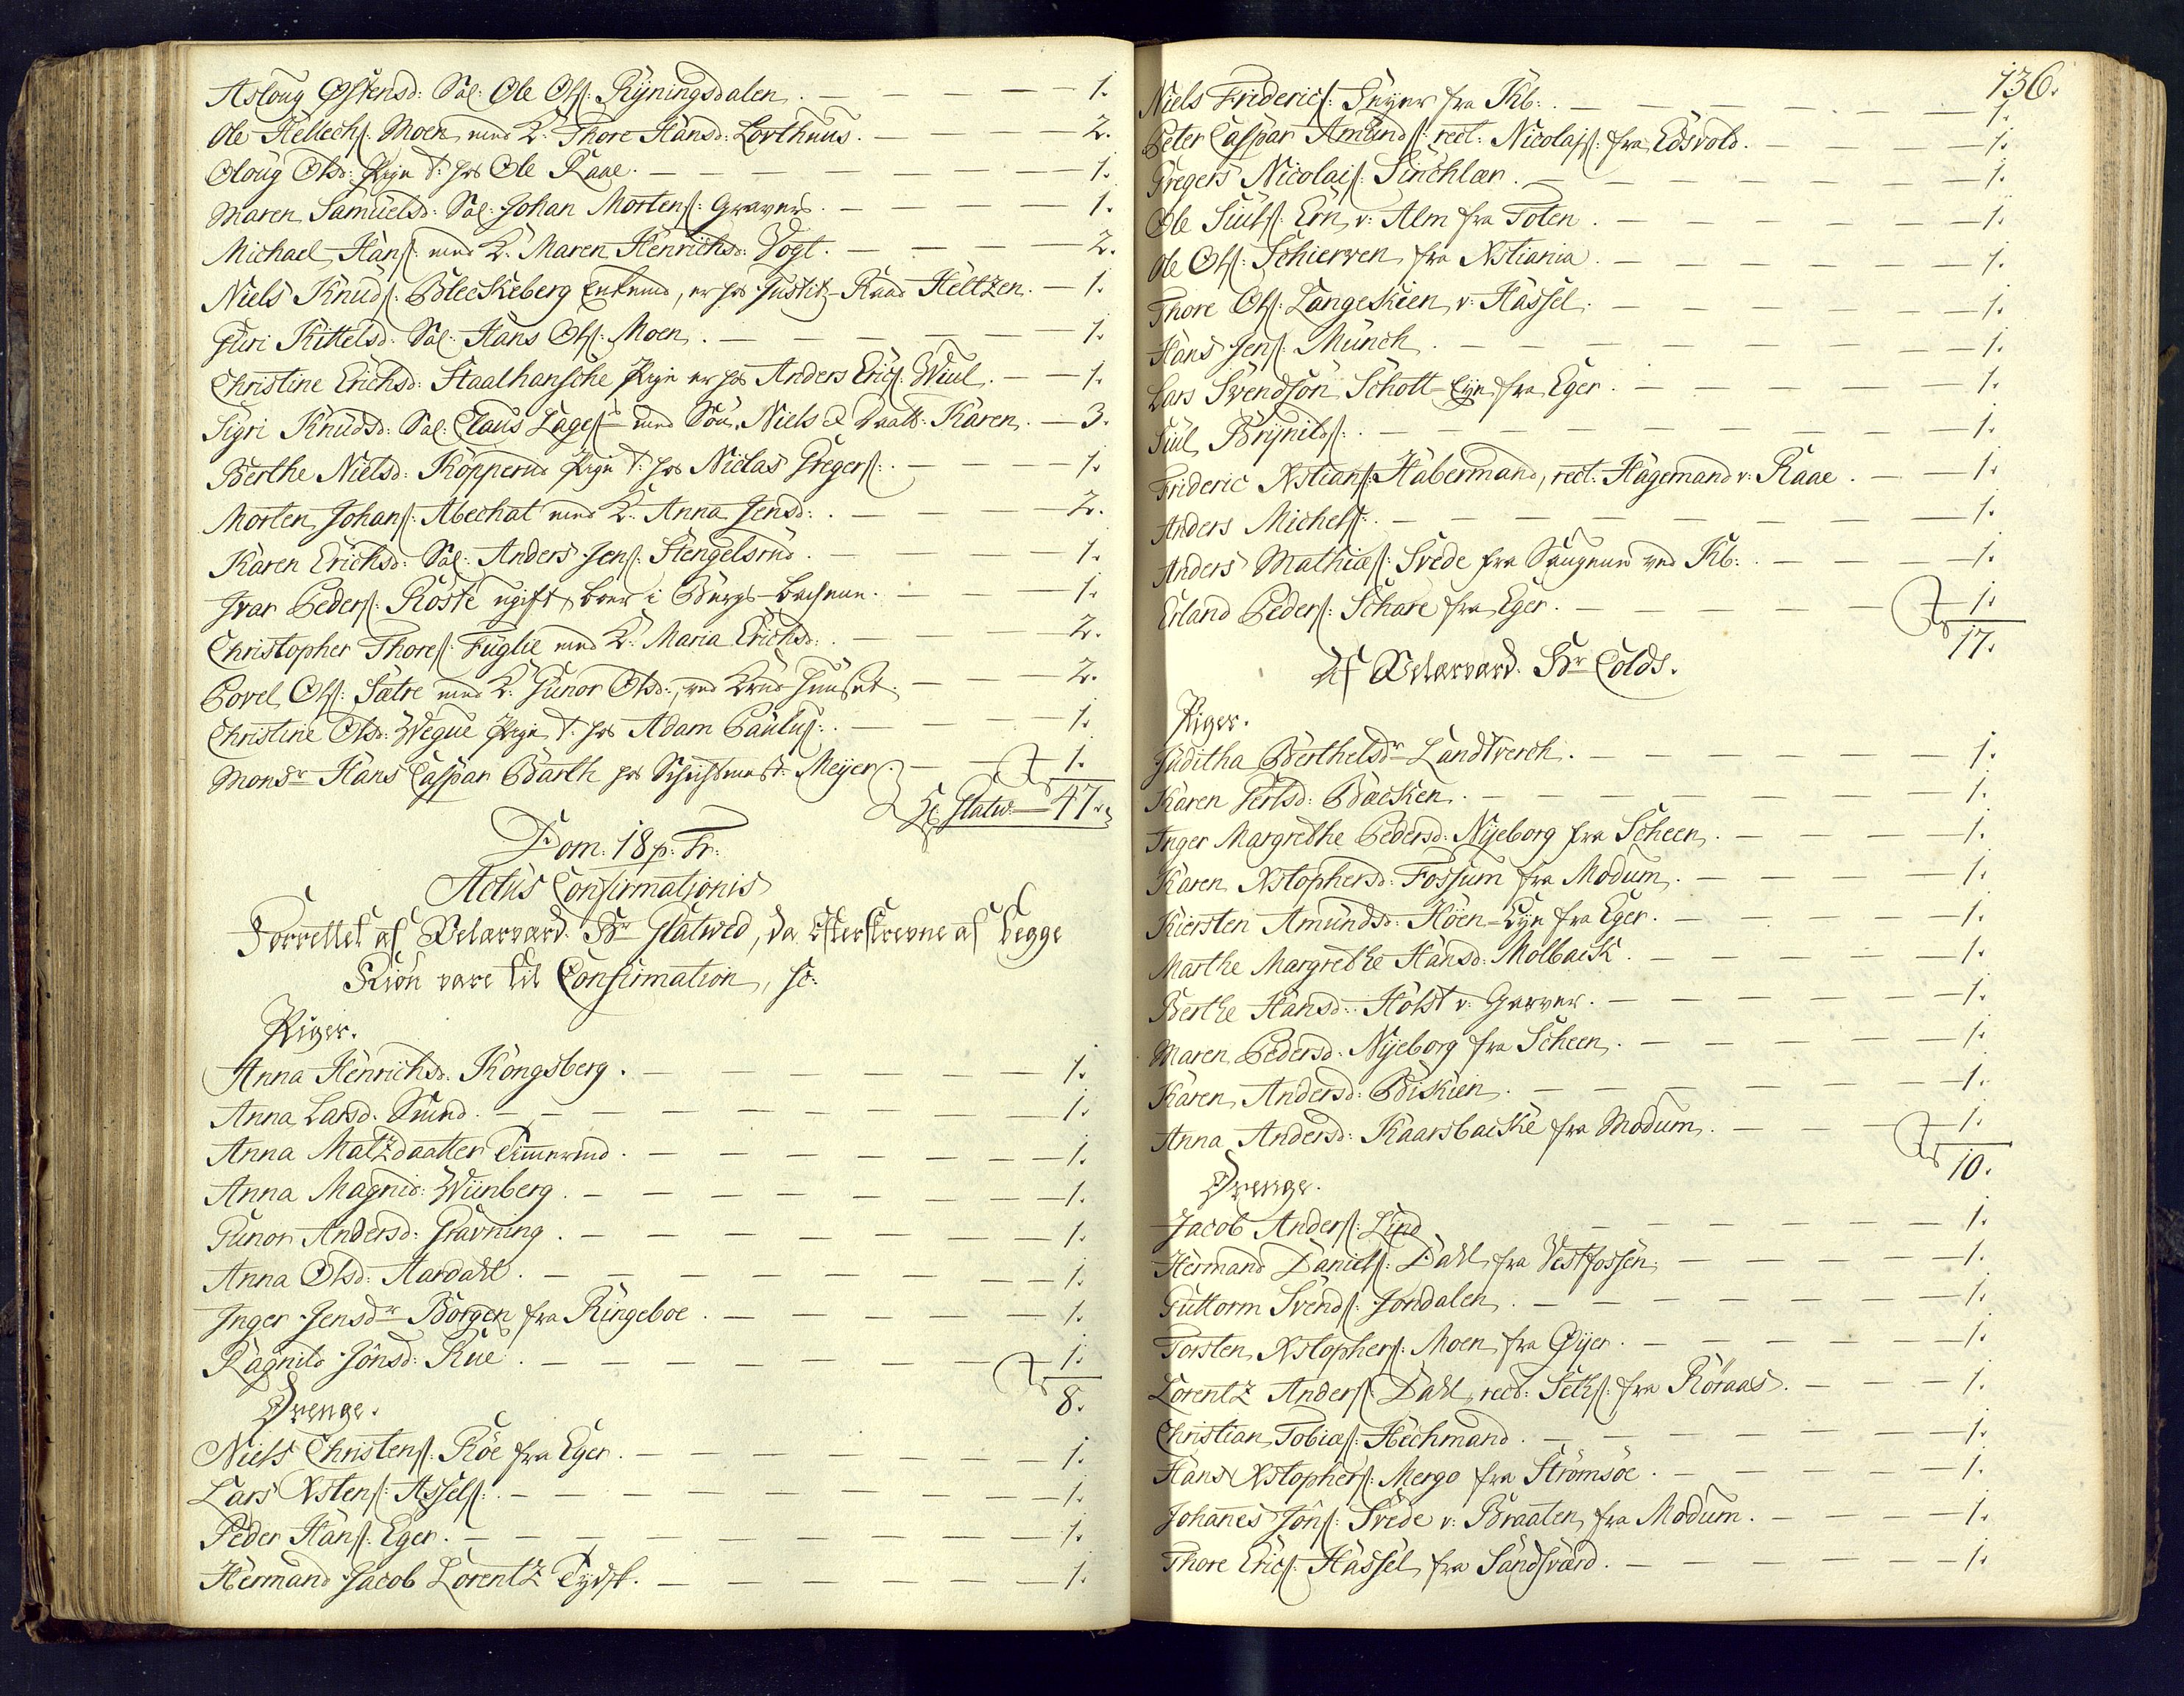 Asloug Østensd: Sal: Ole Ols: Ryningsdalen. — 1.
Ole Hellechs: Moen med K: Thore Hansd: Lorthuus. — 2.
Oloug Olsd: Pige t: hos Ole Raae. — 1.
Maren Samuelsd: Sal: Johan Mortens: Gravers. — 1.
Michael Hans: med K: Maren Henrichsd: Vogt. — 2.
Niels Knuds: Bleckeberg Enkemd, er hos Justitz-Raad Heltzen. — 1.
Guri Kittelsd: Sal: Hans Ols: Moen. — 1.
Christine Erichsd: Staalhansche Pige er hos Anders Erics: Wiul. — 1.
Sigri Knudsd: Sal: Claus Lages: med Søn. Niels & Daatt: Karen. — 3.
Berthe Nielsd: Kopperud Pige t: hos Niclas Gregers: — 1.
Morten Johans: Abechat med K: Anna Jensd: — 2.
Karen Erichsd: Sal: Anders Jens: Stengelsrud. — 1.
Ivar Peders: Røste ugift, boer i Bergs-bachene. — 1.
Christopher Thores: Fuglie med K: Maria Erichsd: — 2.
Povel Ols: Sætre med K: Gunor Olsd: ved Krud-huuset. — 2.
Christine Olsd: Wegue Pige t: hos Adam Paulus: — 1.
Monsr Hans Caspar Barth hos Schichtmest: Meyer. — 1.
Hr Slatw: — 47.
Dom. 18 p. Tr.
Actus Confirmationis
Forrettet af Velærværd. Hr Slatwed, da efterskrevne af begge
Kiøn vare til Confirmation, sc:
Piger.
Anna Henrichsd. Kongsberg. — 1.
Anna Larsd. Sund. — 1.
Anna Matzdaatter Timermd. — 1.
Anna Magnid: Wiinberg. — 1.
Gunor Andersd: Gravning. — 1.
Anna Olsd: Aardahl. — 1.
Inger Jensdr Borgen fra Ringeboe. — 1.
Ragnild Jonsd: Rue. — 1.
8.
Drenge.
Niels Christens: Røe fra Eger. — 1.
Lars Xstens: Assels: — 1.
Peder Hans: Eger. — 1.
Hermand Jacob Lorentz Tydsk. — 1.
136.
Niels Friderics: Geyer fra Kb: — 1.
Peter Caspar Amunds: rect: Nicolajs: fra Edsvold. — 1.
Gregers Nicolais: Sinchlær. — 1.
Ole Siuls: Ern v: Alm fra Toten. — 1.
Ole Ols: Schierven fra Xstiania. — 1.
Thore Ols: Langeskien v: Hassel. — 1.
Hans Jens: Munch. — 1.
Lars Svendsøn Schott-Eye fra Eger. — 1.
Siul Brynilds: — 1.
Frideric Xstians: Habermand, rect: Hagemand v: Raae. — 1.
Anders Michels: — 1.
Anders Mathiæs: Svede fra Saugene ved Kb: — 1.
Erland Peders: Schare fra Eger. — 1.
17.
Af Velærværd. Hr Colds.
Piger.
Juditha Berthelsdr Landtverch. — 1.
Karen Gertsd: Backen. — 1.
Inger Margrethe Pedersd: Nyeborg fra Scheen. — 1.
Karen Xstophersd: Fossum fra Modum. — 1.
Kiersten Amundsd: Høen-Eye fra Eger. — 1.
Marthe Margrethe Hansd: Molback. — 1.
Berthe Hansd: Holst v: Garver. — 1.
Maren Pedersd: Nyeborg fra Scheen. — 1.
Karen Andersd: Biskien. — 1.
Anna Andersd: Kaarsbacke fra Modum. — 1.
10.
Drenge.
Jacob Anders: Lind — 1.
Hermand Daniels: Dahl fra Vestfossen. — 1.
Guttorm Svends: Jondalen. — 1.
Torsten Xstophers: Moen fra Øyer. — 1.
Lorentz Anders: Dahl, rect: Seths: fra Røraas. — 1.
Christian Tobiæs: Hechmand. — 1.
Hans Xstophers: Mergo fra Strømsøe. — 1.
Johanes Jons: Svede v: Braaten fra Modum. — 1.
Thore Erics: Hassel fra Sandsværd. — 1.